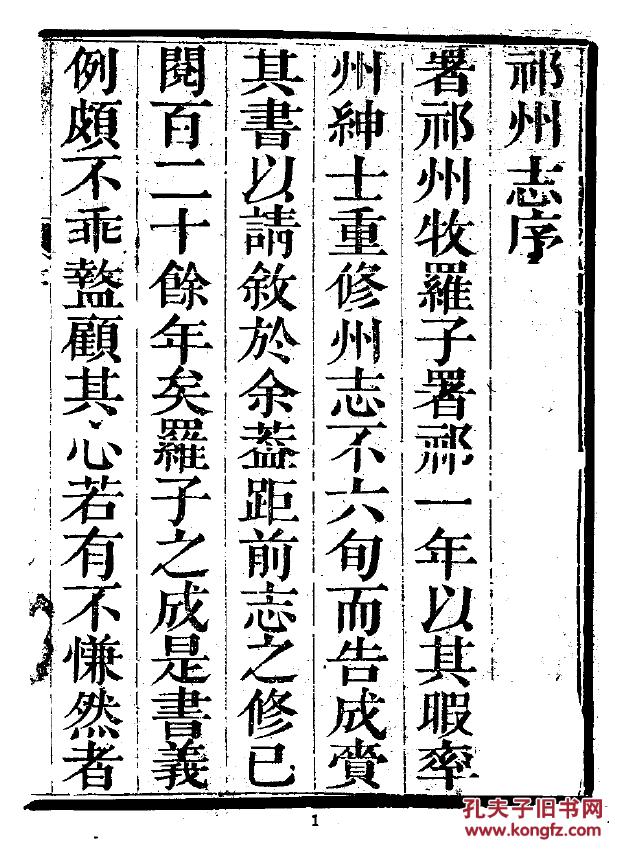 祁州志序
署祁州牧羅子署祁一年以其暇率
州紳士重修州志不六旬而告成賫
其書以請敘於余葢距前志之修已
閱百二十餘年矣羅子之成是書義
例頗不乖盭顧其心若有不慊然者
1
孔夫子旧书网
www.kongfz.com